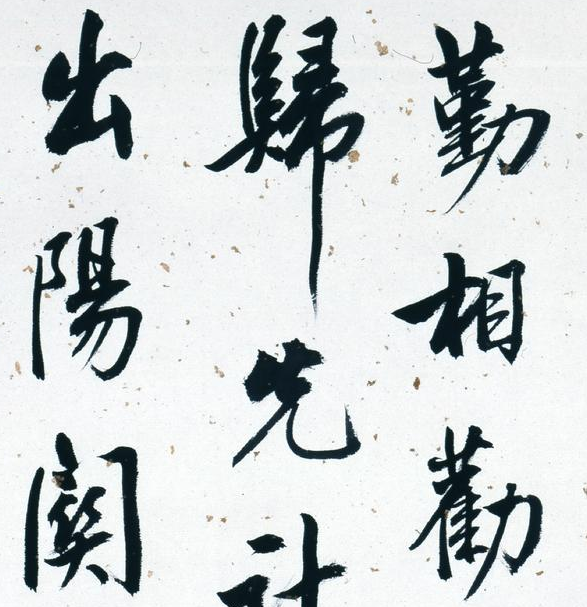 勤相勸
歸先計
出陽関